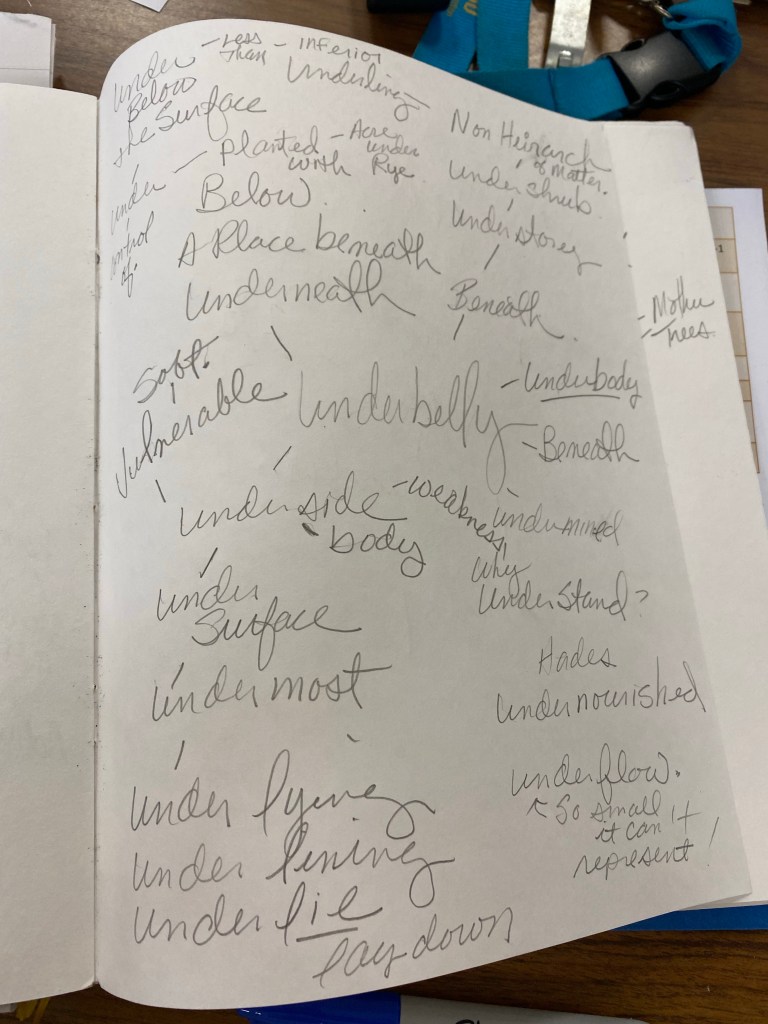 under - Less Than - inferior
Below
the Surface
Underling
under - planted with - Acre under Rye
under
control
of.
Below.
A Place beneath
Underneath
Non Heirarch
of matter.
under shrub.
understorey
Beneath.
- Mother
trees
Soft.
Vulnerable
Underbelly
- Underbody
- Beneath
underside - weakness
body
undermined
under
Surface
why
Understand?
undermost
Hades
Undernourished
under lying
under lining
underlie
lay down
underflow.
So small
it can't
represent!